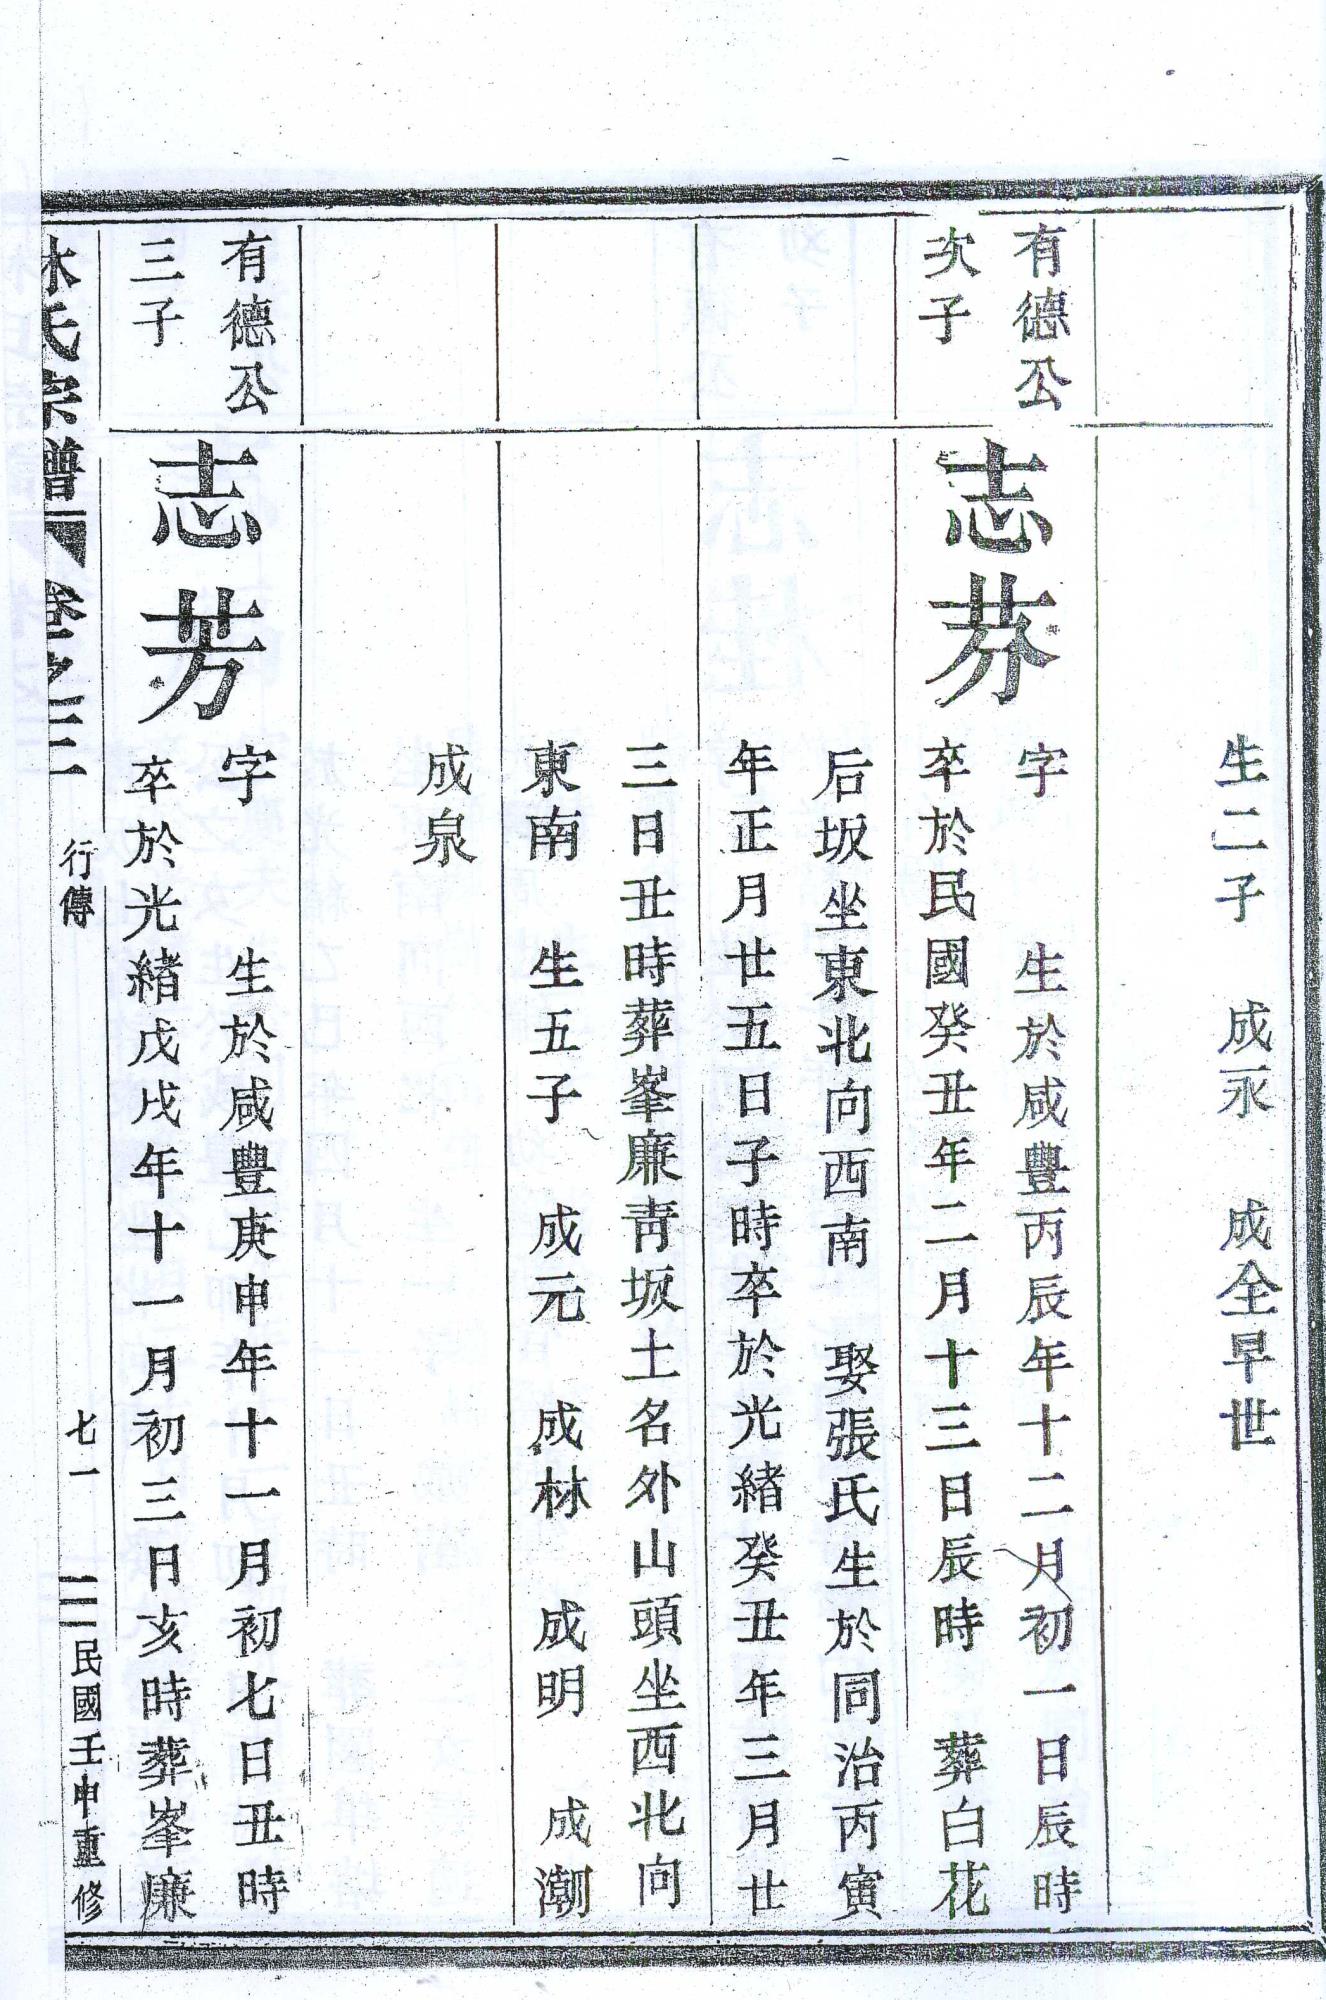 生二子　成永　成全早世
有德公
次子
志芬
字　生於咸豐丙辰年十二月初一日辰時
卒於民國癸丑年二月十三日辰時　葬白花
后坂坐東北向西南　娶張氏生於同治丙寅
年正月廿五日子時卒於光緒癸丑年三月廿
三日丑時葬峯廉靑坂土名外山頭坐西北向
東南　生五子　成元　成林　成明　成潮
成泉
有德公
三子
志芳
字　生於咸豐庚申年十一月初七日丑時
卒於光緒戊戌年十一月初三日亥時葬峯廉
林氏宗譜　卷之三　行傳　七一　民國壬申重修